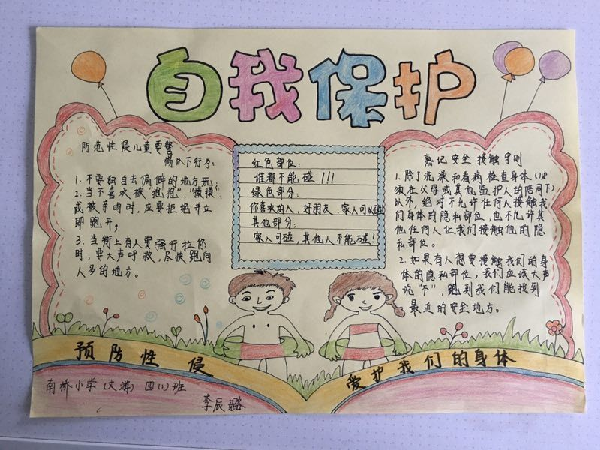 自我保护
防范性侵儿童要警
惕以下行为:
1.不要独自去偏僻的地方玩。
2.当不喜欢被"抱抱""摸摸"
或被亲吻时,应要拒绝并立
即跑开。
3.当街上有人要
时,要大声呼救,尽快跑向
人多的地方。
红色部位
谁都不能碰!!!
绿色部分:
你喜欢的人 好朋友 家人可以碰
其他部分:
家人可碰 其他人不能乱碰!
熟记安全接触守则
1.除了洗澡和看病检查身体
须在父母或其他监护人的陪同下
以外,绝对不允许任何人接触我
们身体的隐和部位,也不允许其
他任何人让我们接触他的隐
和部位。
2.如果有人想要接触我们的身
体的隐和部位,我们应该大声
说"不",跑到我们能找到
最近的安全地方。
预防性侵
爱护我们的身体
南桥小学 四(1)班
李辰